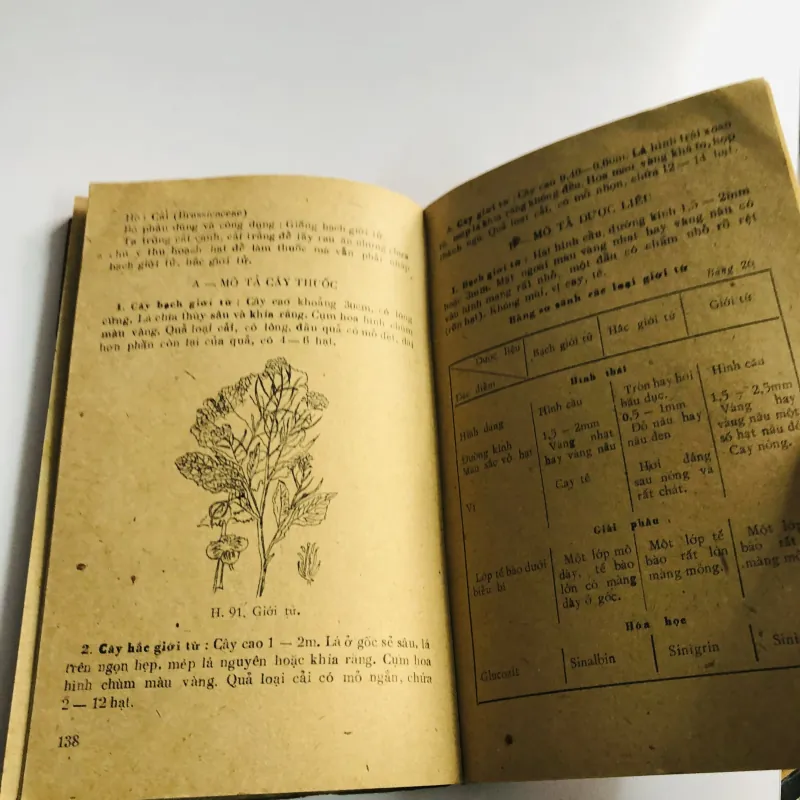 Họ : Cải (Brassicaceae)
Bộ phận dùng và công dụng : Giống bạch giới tử.
Ta trồng cải canh, cải trắng để lấy rau ăn nhưng chưa
chú ý thu hoạch hạt để làm thuốc mà vẫn phải nhập
bạch giới tử, hắc giới tử.
A — MÔ TẢ CÂY THUỐC
1. Cây bạch giới tử : Cây cao khoảng 30cm, có lông
cứng. Lá chia thùy sâu và khía răng. Cụm hoa hình chùm
màu vàng. Quả loại cải, có lông, đầu quả có mỏ dẹt, dài
hơn phần còn lại của quả, có 4 — 6 hạt.
H. 91. Giới tử.
2. Cây hắc giới tử : Cây cao 1 — 2m. Lá ở gốc sẻ sâu, lá
trên ngọn hẹp, mép lá nguyên hoặc khía răng. Cụm hoa
hình chùm màu vàng. Quả loại cải có mỏ ngắn, chứa
2 — 12 hạt.
138
3. Cây giới tử : Cây cao 0,40 — 0,60m. Lá hình trái xoan
tù, mép lá khía răng không đều. Hoa màu vàng khá to, họp
thành ngù. Quả loại cải, có mỏ nhọn, chứa 12 — 14 hạt.
B — MÔ TẢ DƯỢC LIỆU
1. Bạch giới tử : Hạt hình cầu, đường kính 1,5 — 2mm
hoặc 3mm. Mặt ngoài màu vàng nhạt hay vàng nâu có
vân hình mạng rất nhỏ, một đầu có chấm nhỏ rõ rệt
(rốn hạt). Không mùi, vị cay, tê.
Bảng 26
Bảng so sánh các loại giới tử
Dược liệu
Đặc điểm
Bạch giới tử
Hắc giới tử
Giới tử
Hình thái
Hình dạng
Hình cầu
Tròn hay hơi
bầu dục.
Hình cầu
Đường kính
1,5 — 2mm
0,5 — 1mm
1,5 — 2,5mm
Màu sắc vỏ hạt
Vàng nhạt
hay vàng nâu
Đỏ nâu hay
nâu đen
Vàng hay
vàng nâu một
số hạt nâu đỏ
Vị
Cay tê
Hơi đắng
sau nóng và
rất chát.
Cay nóng.
Giải phẫu
Lớp tế bào dưới
biểu bì
Một lớp mô
dày, tế bào
lớn có màng
dày ở góc.
Một lớp tế
bào rất lớn
màng mỏng.
Một lớp
bào rất
màng mỏ
Hóa học
Glucozit
Sinalbin
Sinigrin
Sini